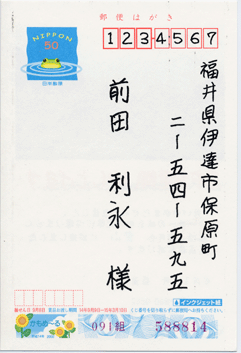 郵便はがき
NIPPON
50
日本郵便
1234567
福井県伊達市保原町
二ー五四ー五九五
前田 利永 様
インクジェット紙
かもめ〜る
091組
588814